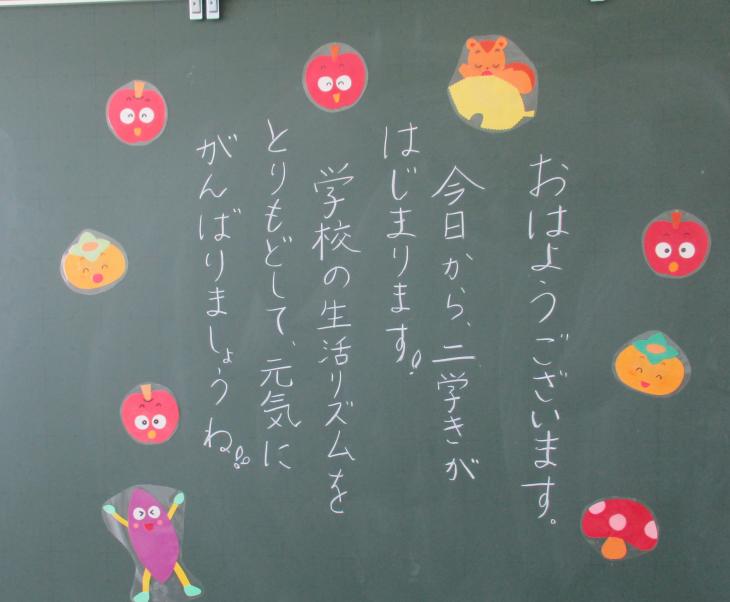 おはようございます。
今日から、二学きが
はじまります!
学校の生活リズムを
とりもどして、元気に
がんばりましょうね!!